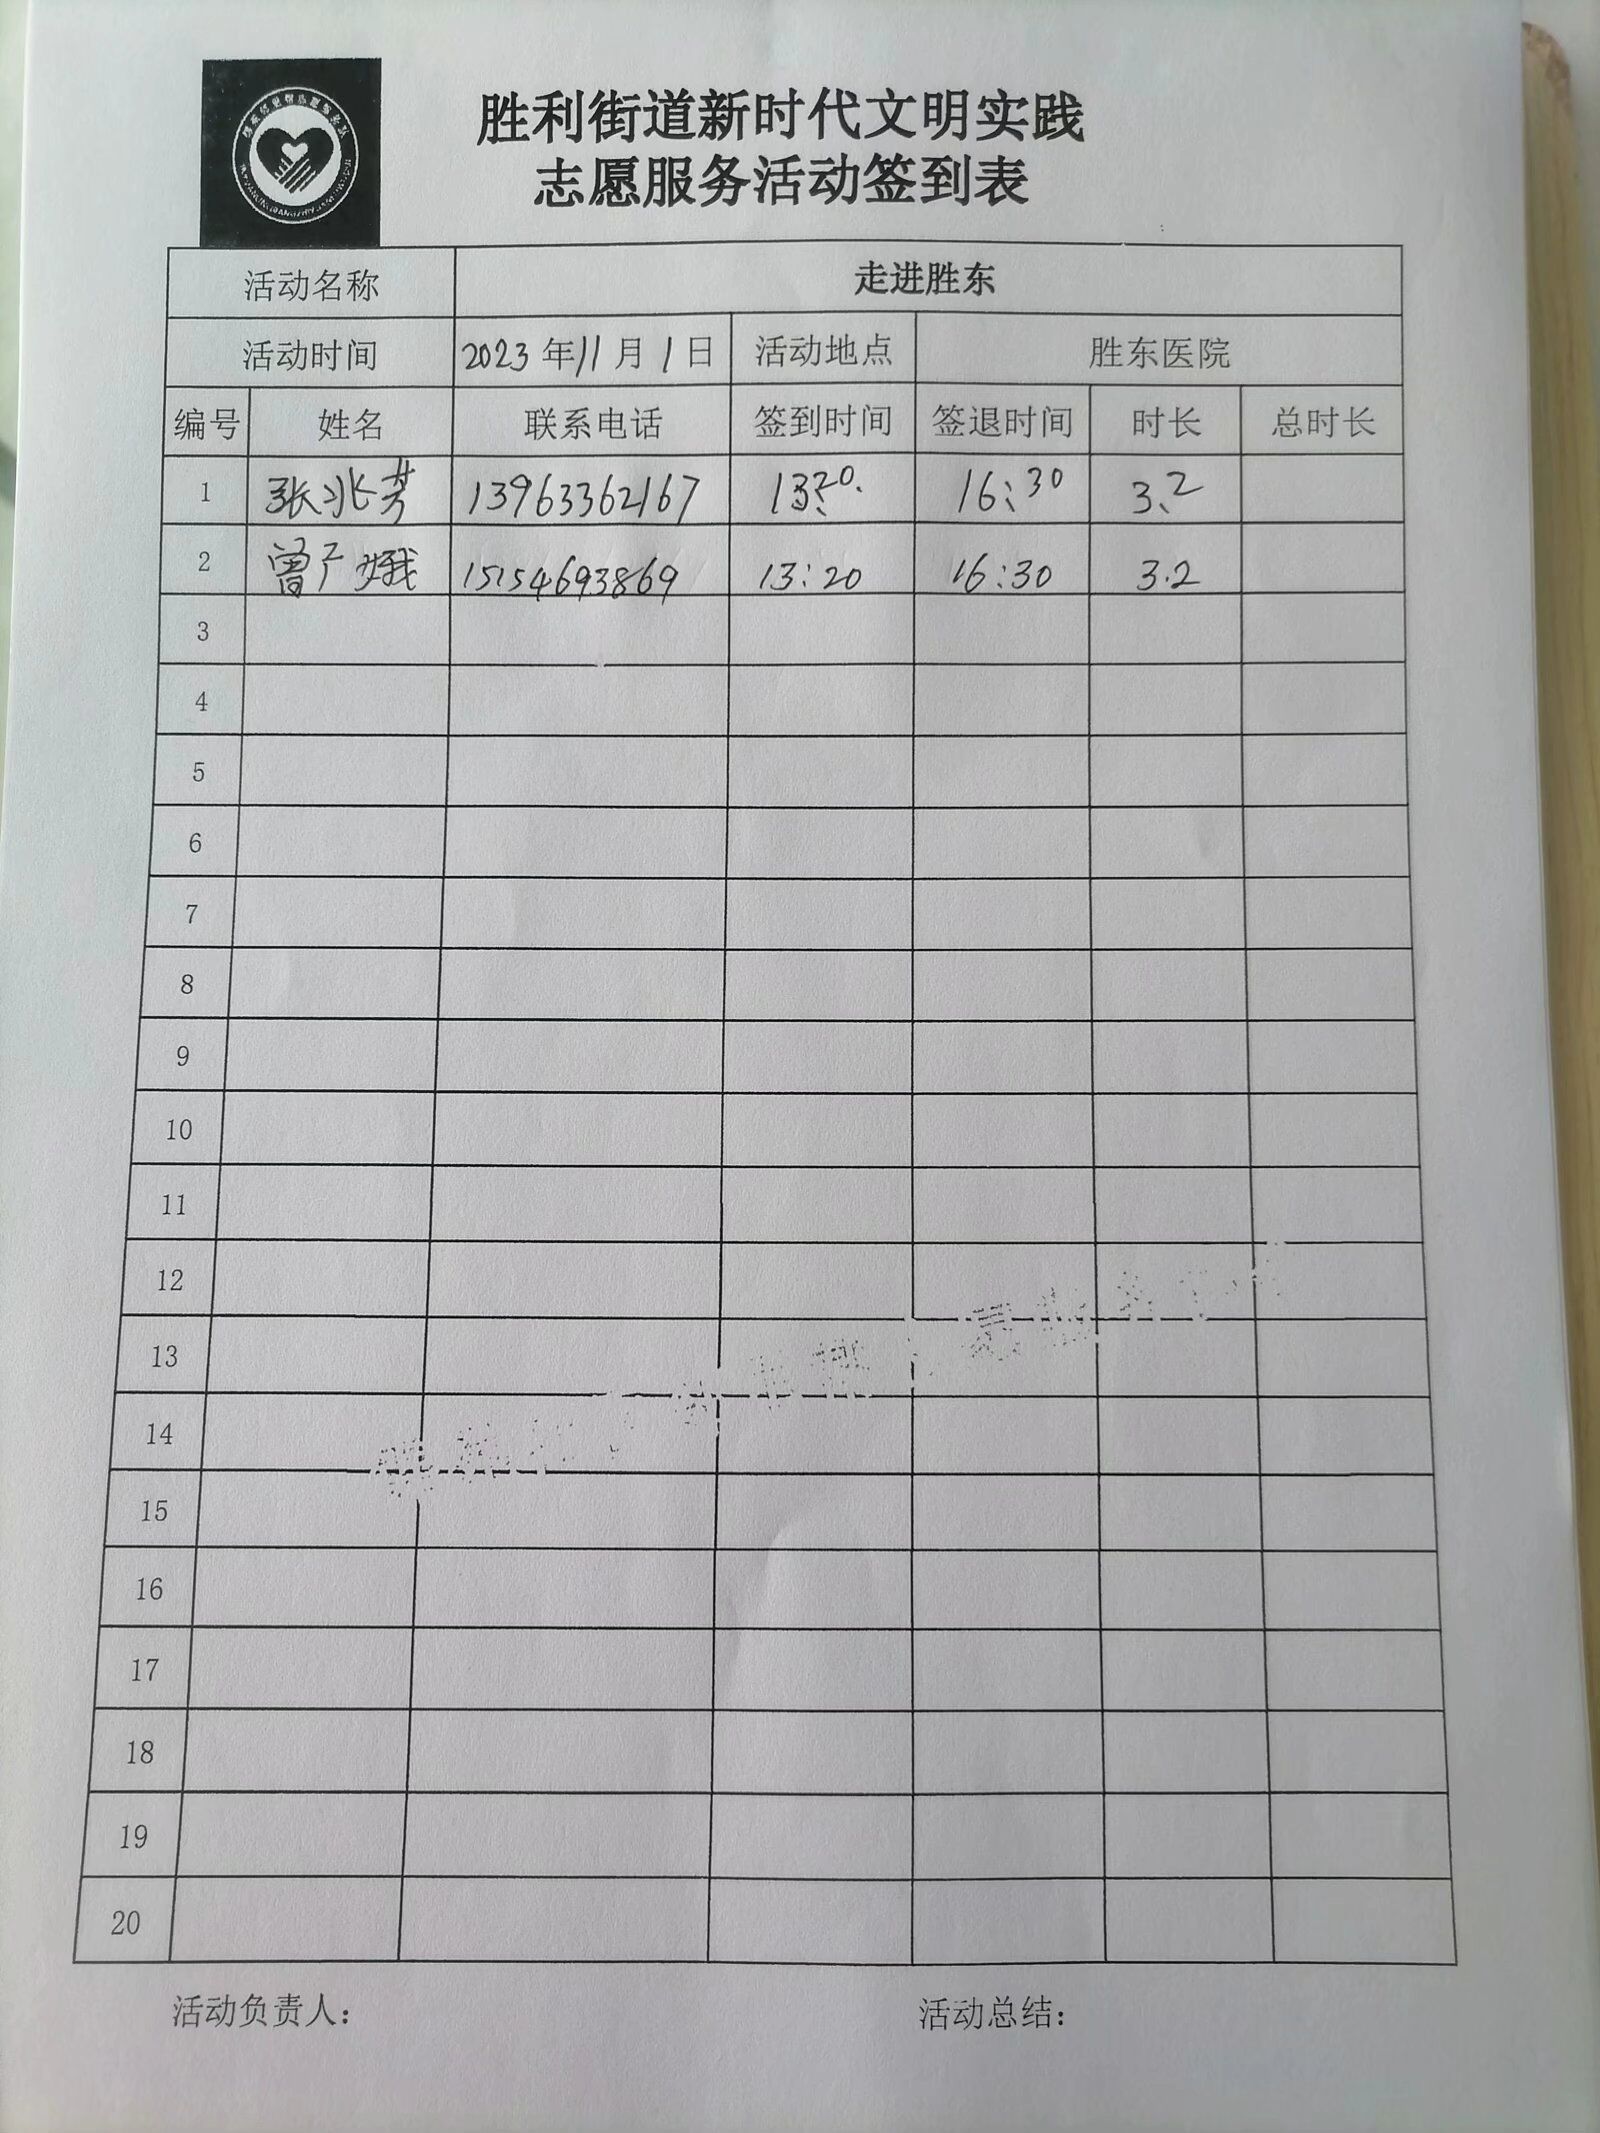 胜利街道新时代文明实践
志愿服务活动签到表
活动名称 走进胜东
活动时间 2023年11月1日 活动地点 胜东医院
编号 姓名 联系电话 签到时间 签退时间 时长 总时长
1 张兆芳 13963362167 13:20 16:30 3.2
2 曾广娥 15154693869 13:20 16:30 3.2
3
4
5
6
7
8
9
10
11
12
13
14
15
16
17
18
19
20
活动负责人： 活动总结：